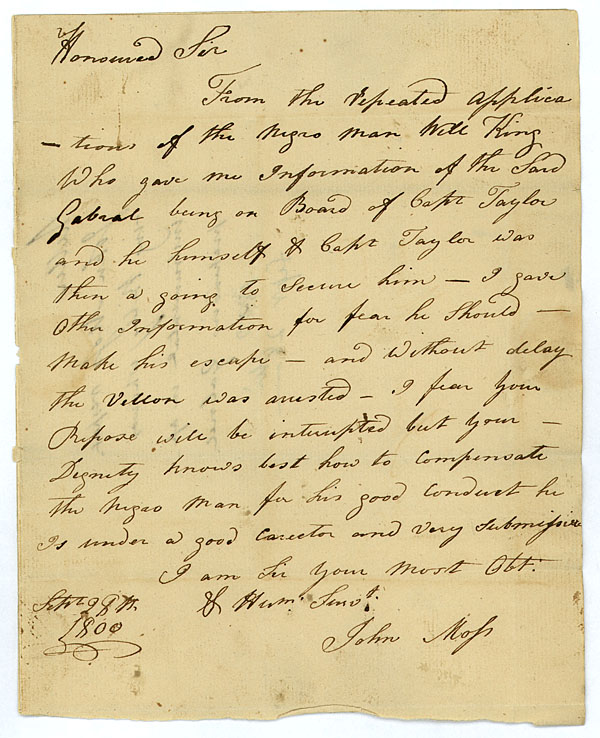 Honoured Sir
From the repeated applica
-tions of the Negro Man Will King
Who gave me Information of the Said
Gabral being on Board of Capt Taylor
and he himself & Capt Taylor was
then a going to Secure him — I gave
Other Information for fear he Should —
Make his escape — and without delay
the Vellon was arested — I fear your
Repose will be interupted but your —
Dignity knows best how to Compensate
the Negro Man for his good Conduct he
Is under a good Carector and very submissive
I am Sir your most Obt.
Septr 28th & Hum Servt.
1800
John Moss